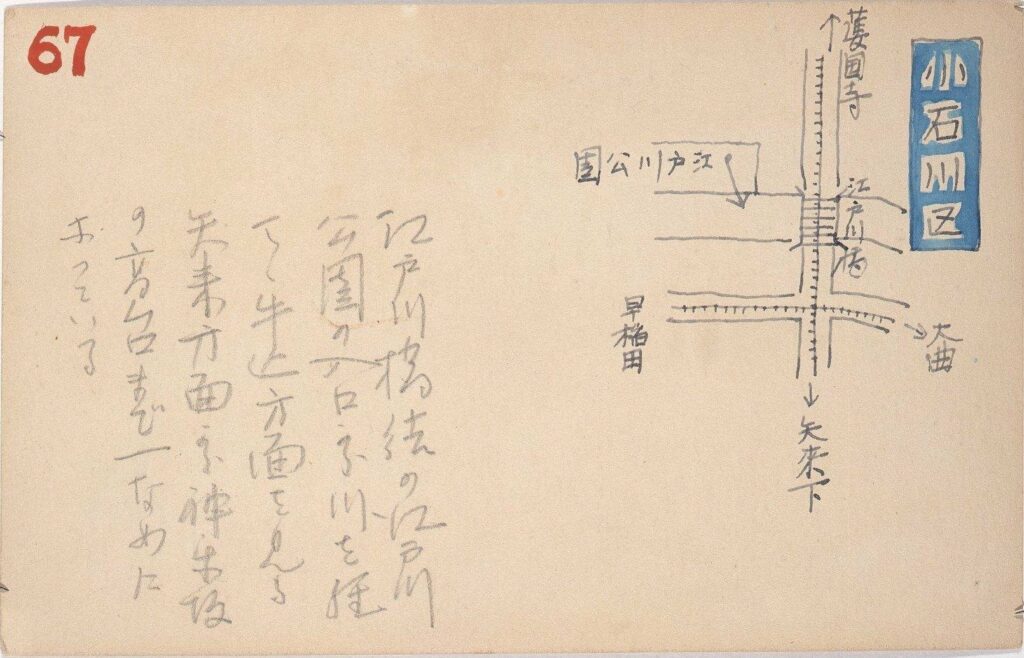 67
小石川区
護国寺
江戸川公園
江戸川橋
早稲田
大曲
矢来下
江戸川橋詰の江戸川
公園の入口より川を経
てゝ牛込方面を見る
矢来方面より神楽坂
の高台まで一なめに
なつている